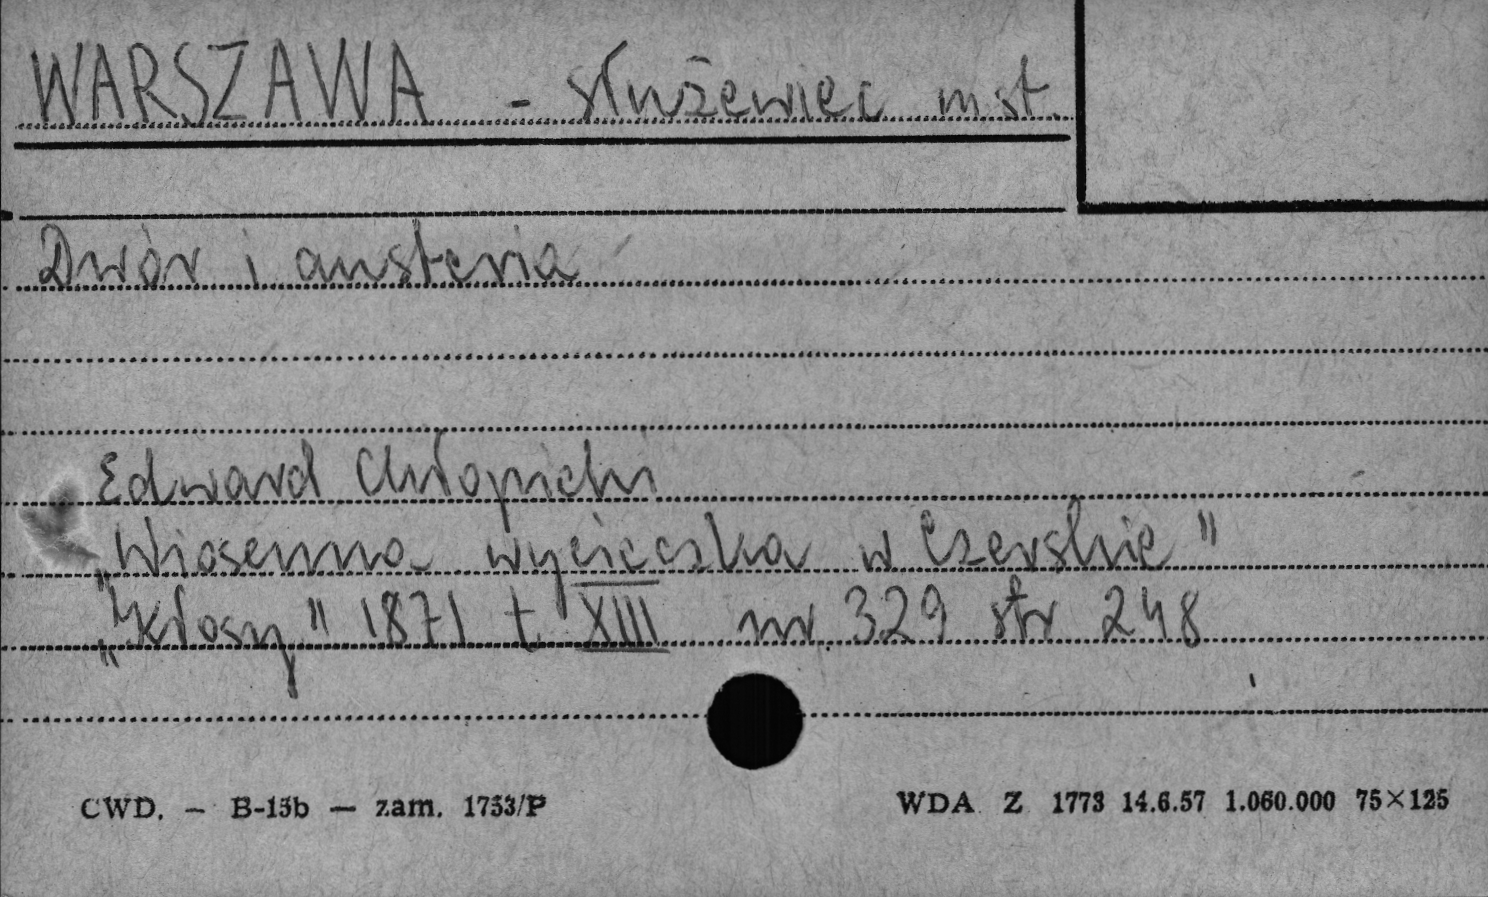 WARSZAWA - Służewiec mst.
Dwór i austeria
Edward Chłopicki
„Wiosenna wycieczka w Czerskie"
„Kłosy" 1871 t. XIII nr 329 str 248
CWD. — B-15b — zam. 1753/P
WDA Z 1773 14.6.57 1.060.000 75×125